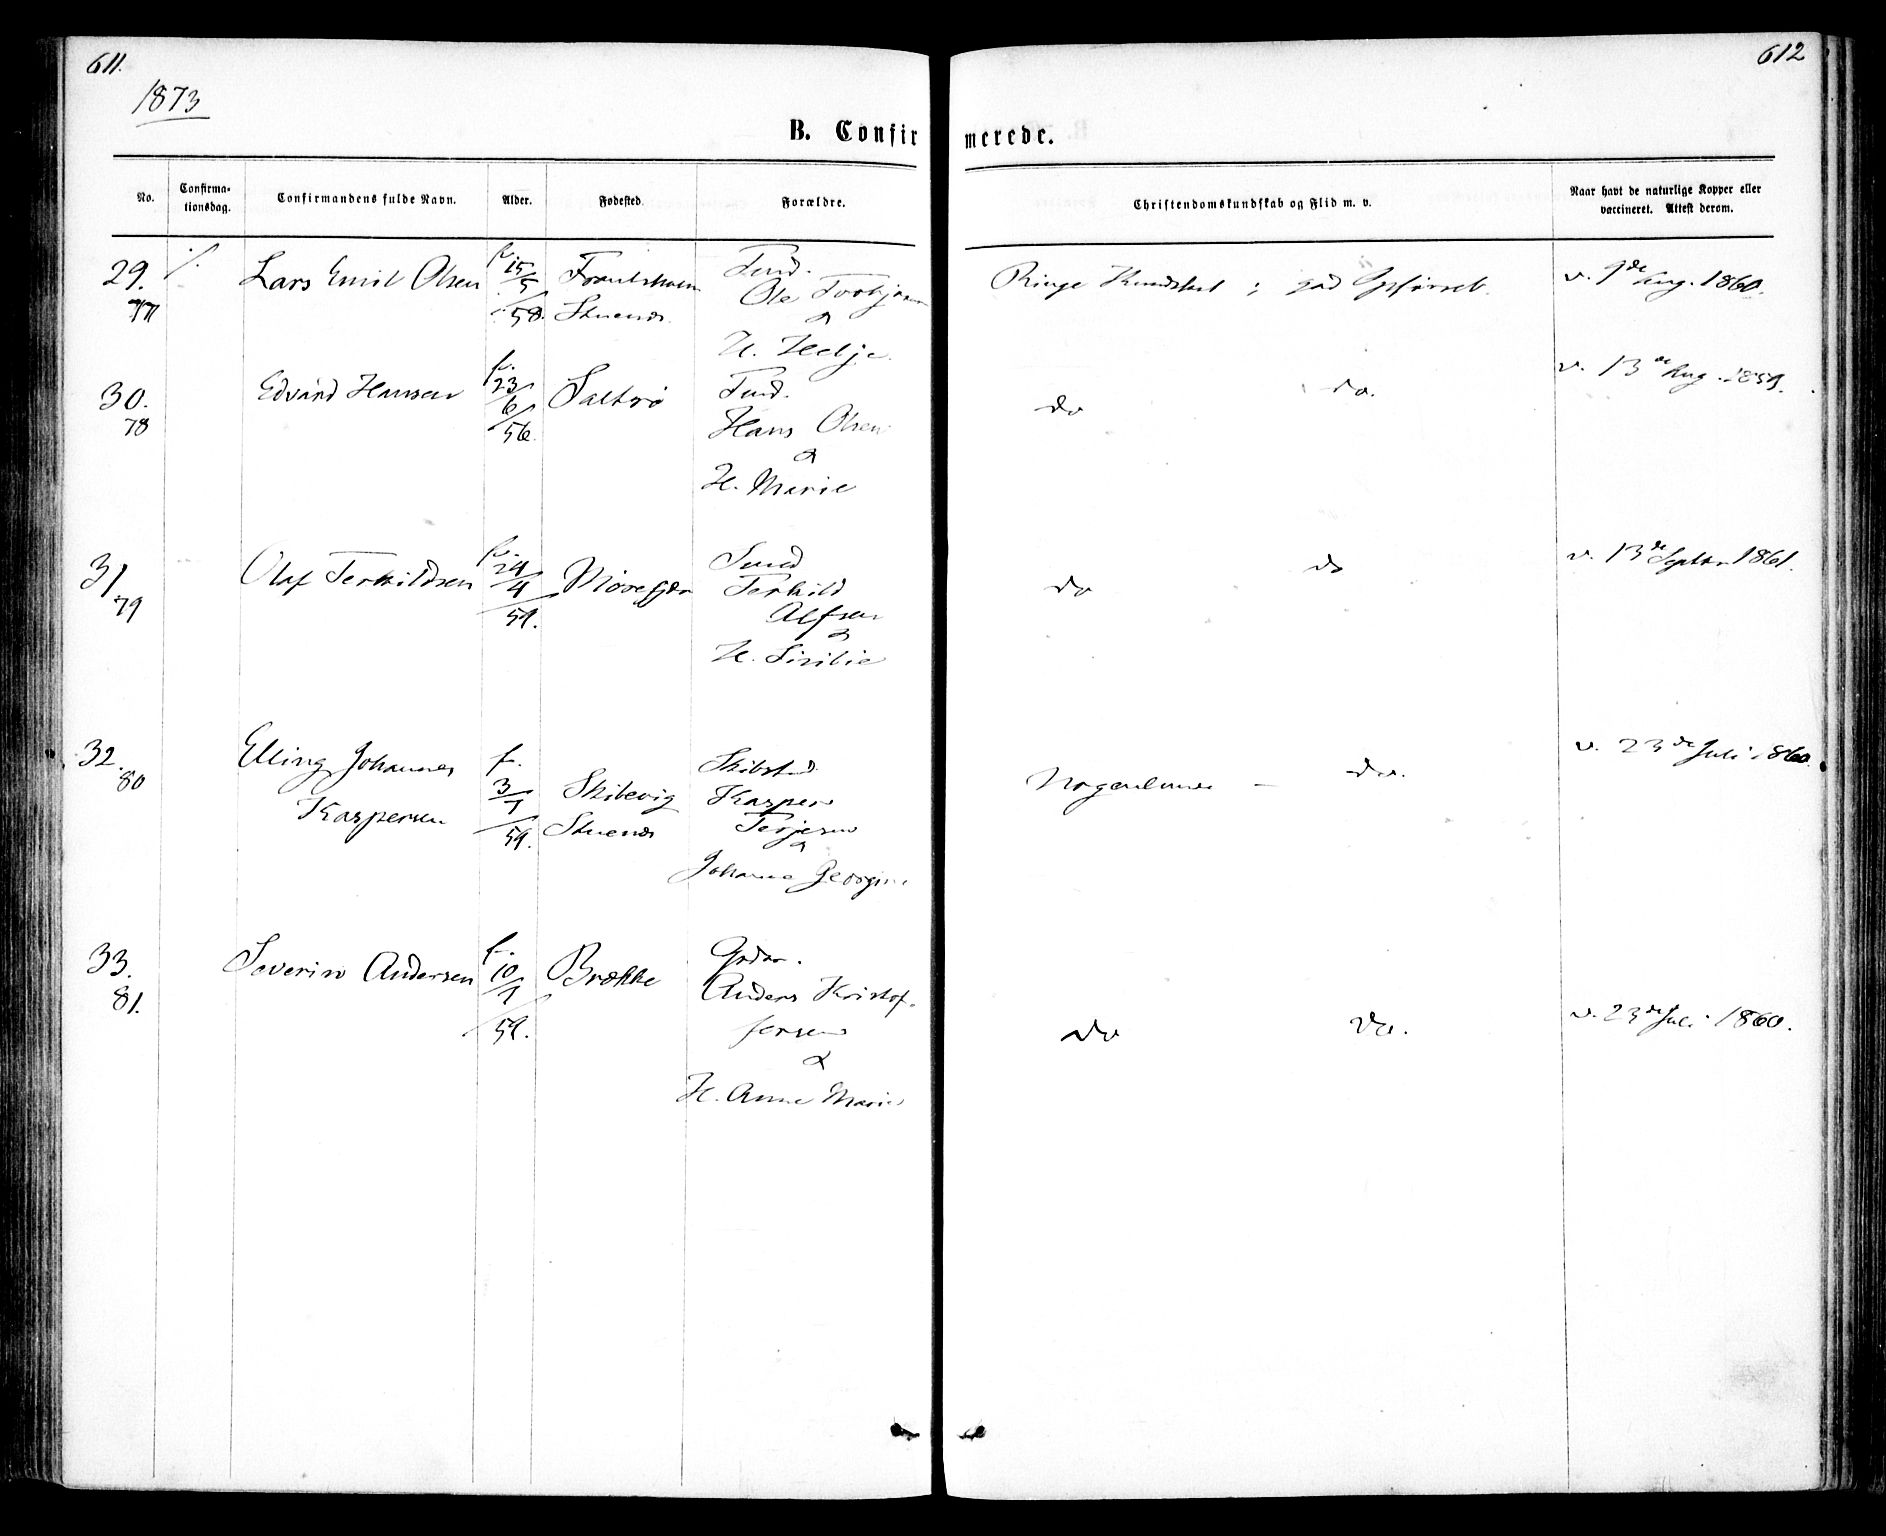 611.
612
1873
B. Confirmerede.
No.
Confirma-
tionsdag.
Confirmandens fulde Navn.
Alder.
Fødested.
Forældre.
Christendomskundskab og Flid m. v.
Naar havt de naturlige Kopper eller
vaccineret. Attest derom.
29.
77
Lars Emil Olsen
f. 15/5
58.
Stuenæs
Ole
&
H.
Ringe Kundskab ; god Opførsel.
v. 9de Aug. 1860.
30.
78
Edvard Hansen
f.
23/6
56.
Saltrø
Hans Olsen
&
H. Marie
do do.
v. 13de Aug. 1859.
31
79
Olaf Terkildsen
f.
24/4
59.
Terkild
Alfsen
&
H.
do do
v. 13de Septbr 1861.
32.
80
Elling Johannes
Kaspersen
f.
3/1
59.
Skibevig
Stuenæs
Kasper
Terjesen
&
Johanne Georgine
Nogenlunde — do.
v. 23de Juli 1860.
33.
81.
Severin Andersen
f.
10/1
59.
Brække
Grdbr.
Anders Kristof-
fersen
&
H. Anne Marie
do do.
v. 23de Juli 1860.